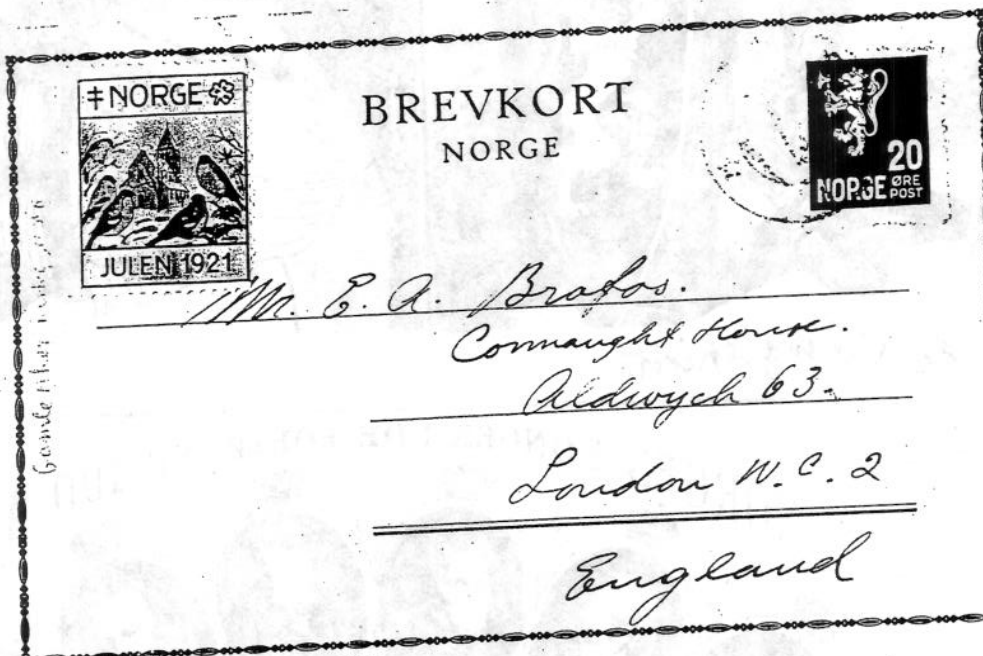 ‡ NORGE
JULEN 1921
BREVKORT
NORGE
20
NORGE ØRE
POST
Mr. E. A. Brofos.
Connaught House.
Aldwych 63.
London W.C. 2
England
Gamle Aker